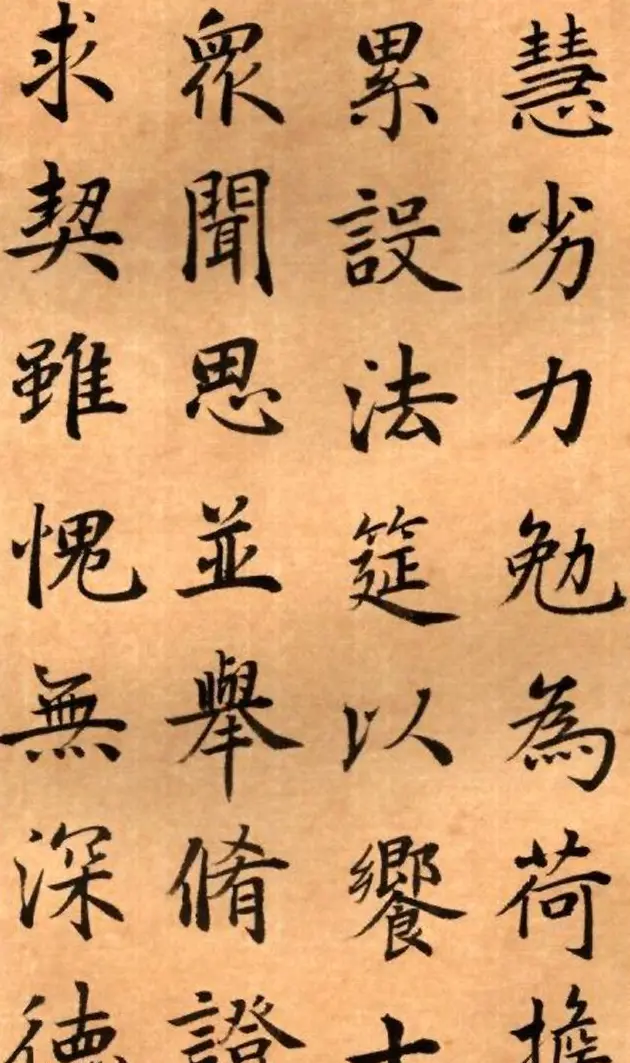 慧劣力勉為荷擔
累設法筵以饗
眾聞思並舉脩證
求契雖愧無深德